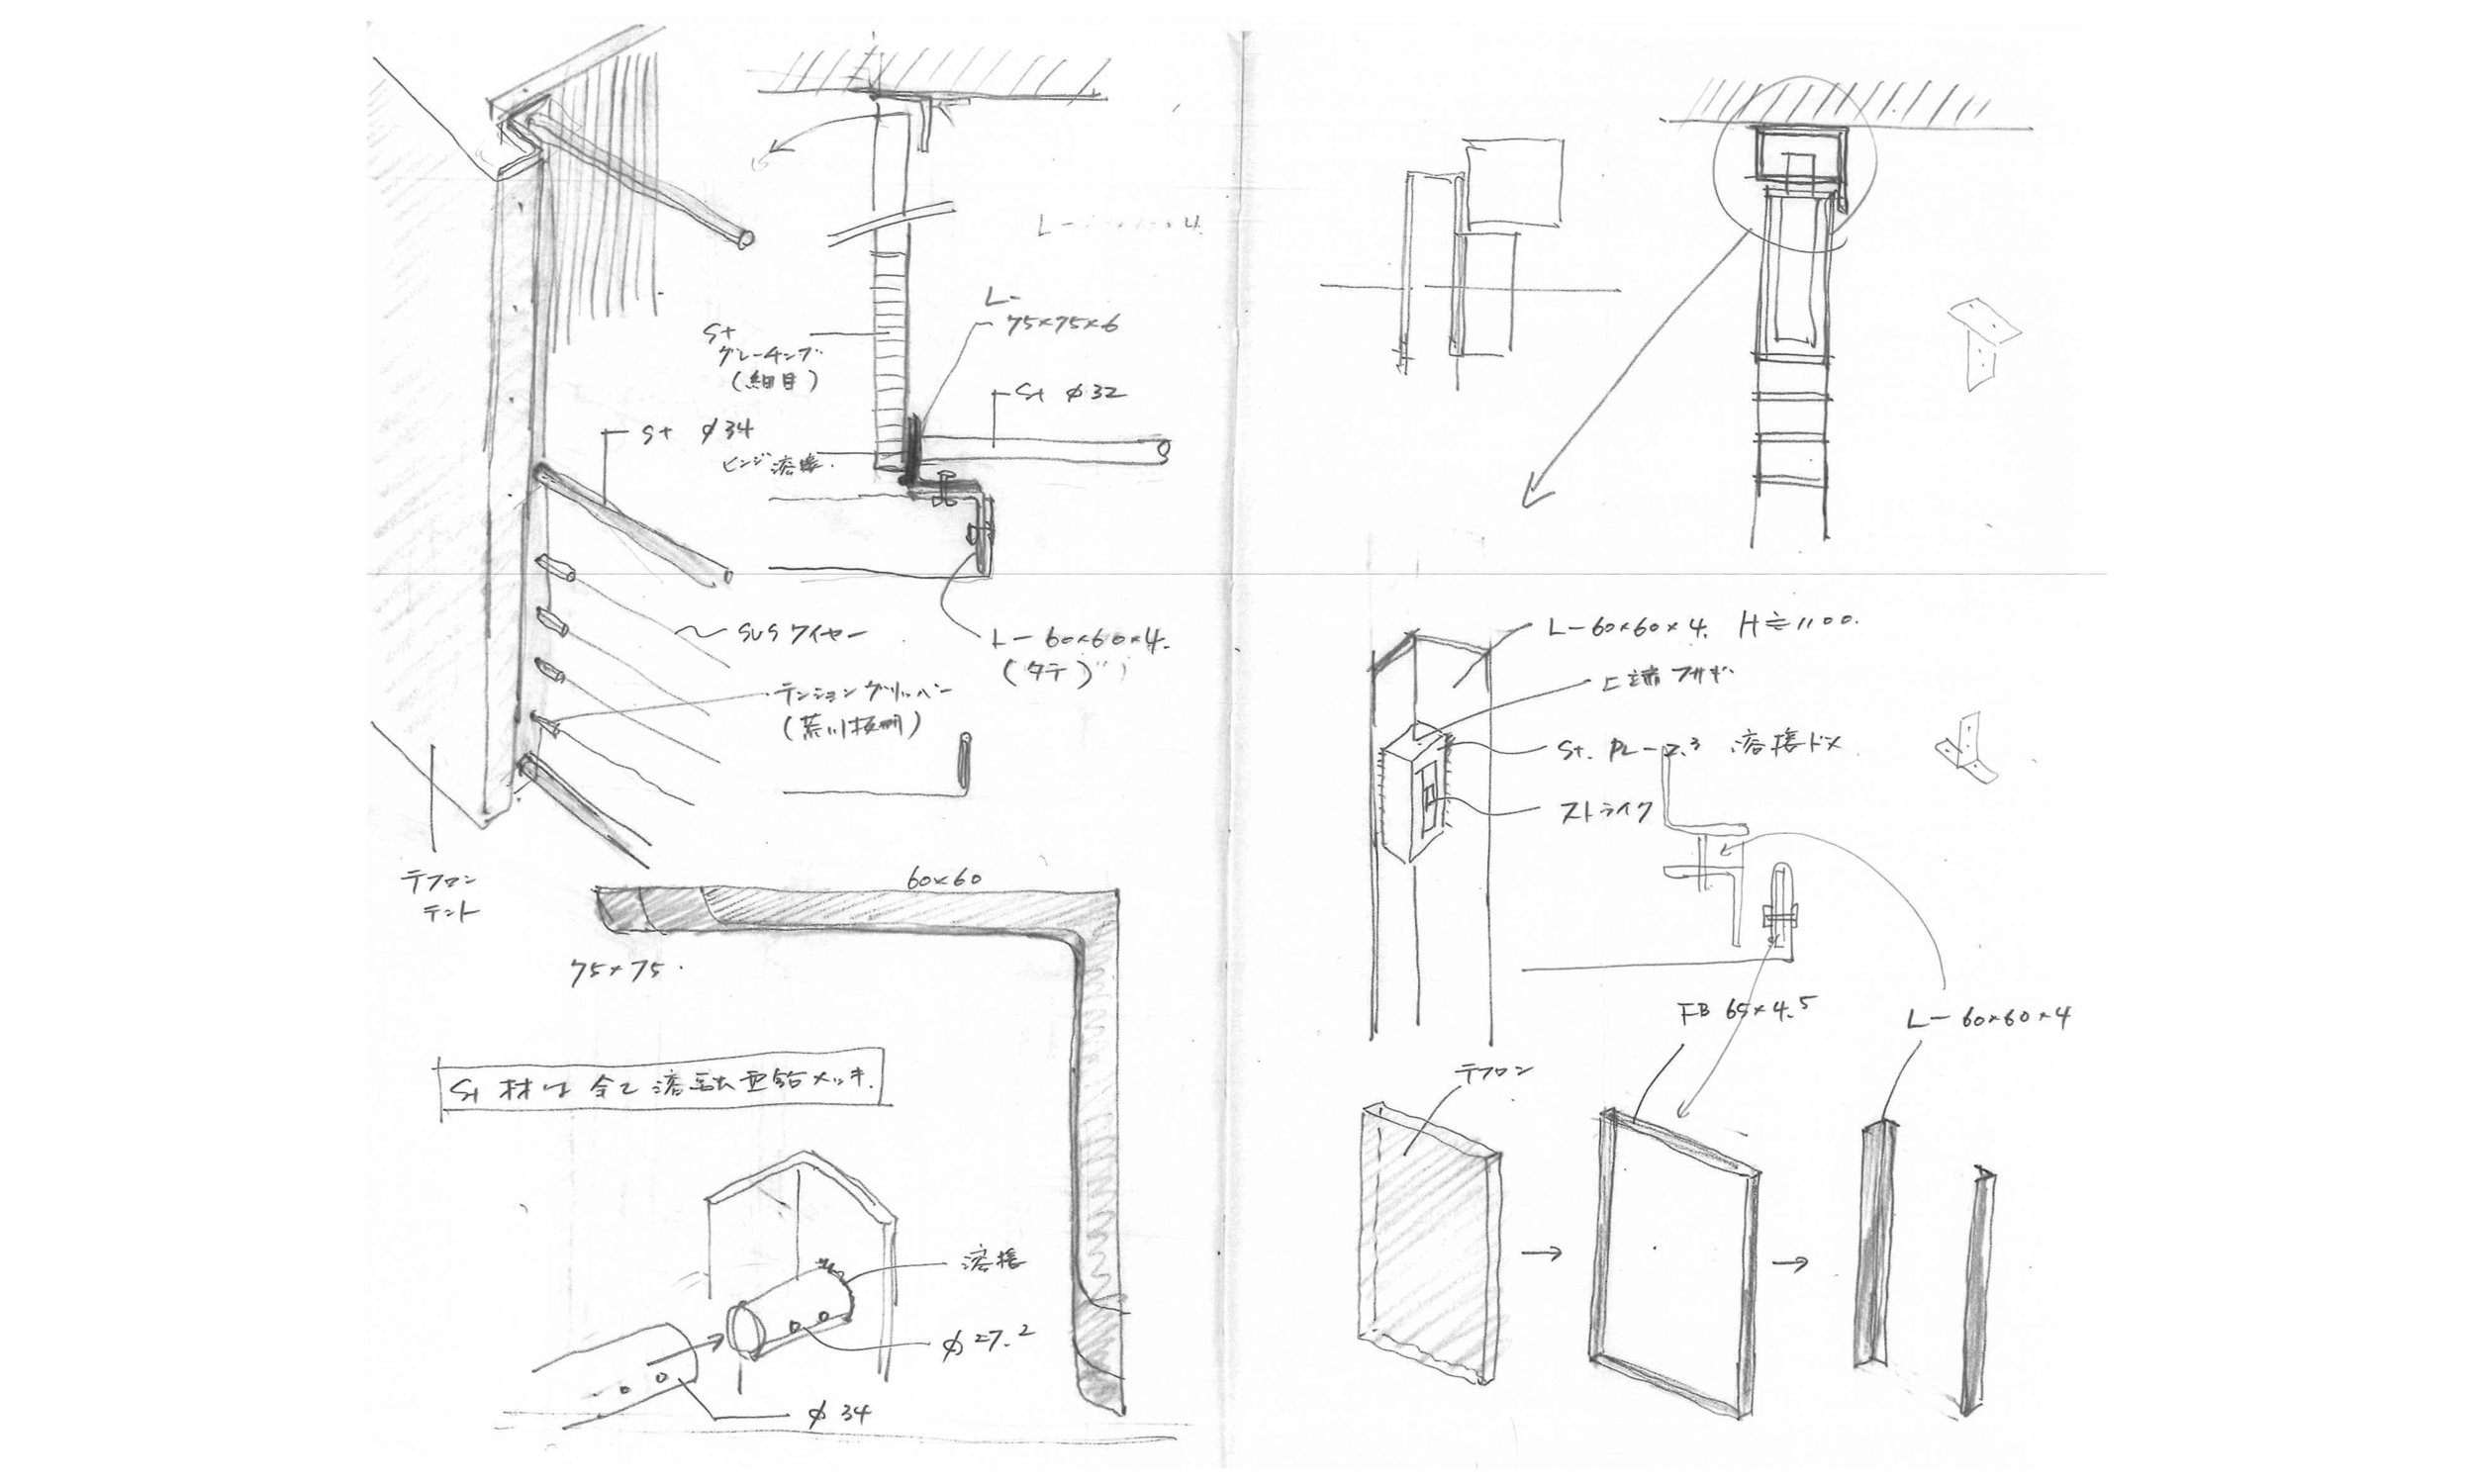 L-
75×75×6
St
グレーチング
(細目)
St φ32
St φ34
ヒンジ溶接.
SUSワイヤー
L-60×60×4.
(タテ)
テンショングリッパー
(荒川技研)
テフロン
テント
60×60
75×75.
St 材は全て溶融亜鉛メッキ.
溶接
φ27.2
φ34
L-60×60×4. H≒1100.
上端フサギ.
St. PL-2.3 溶接ドメ
ストライク
FB 65×4.5
L-60×60×4
テフロン